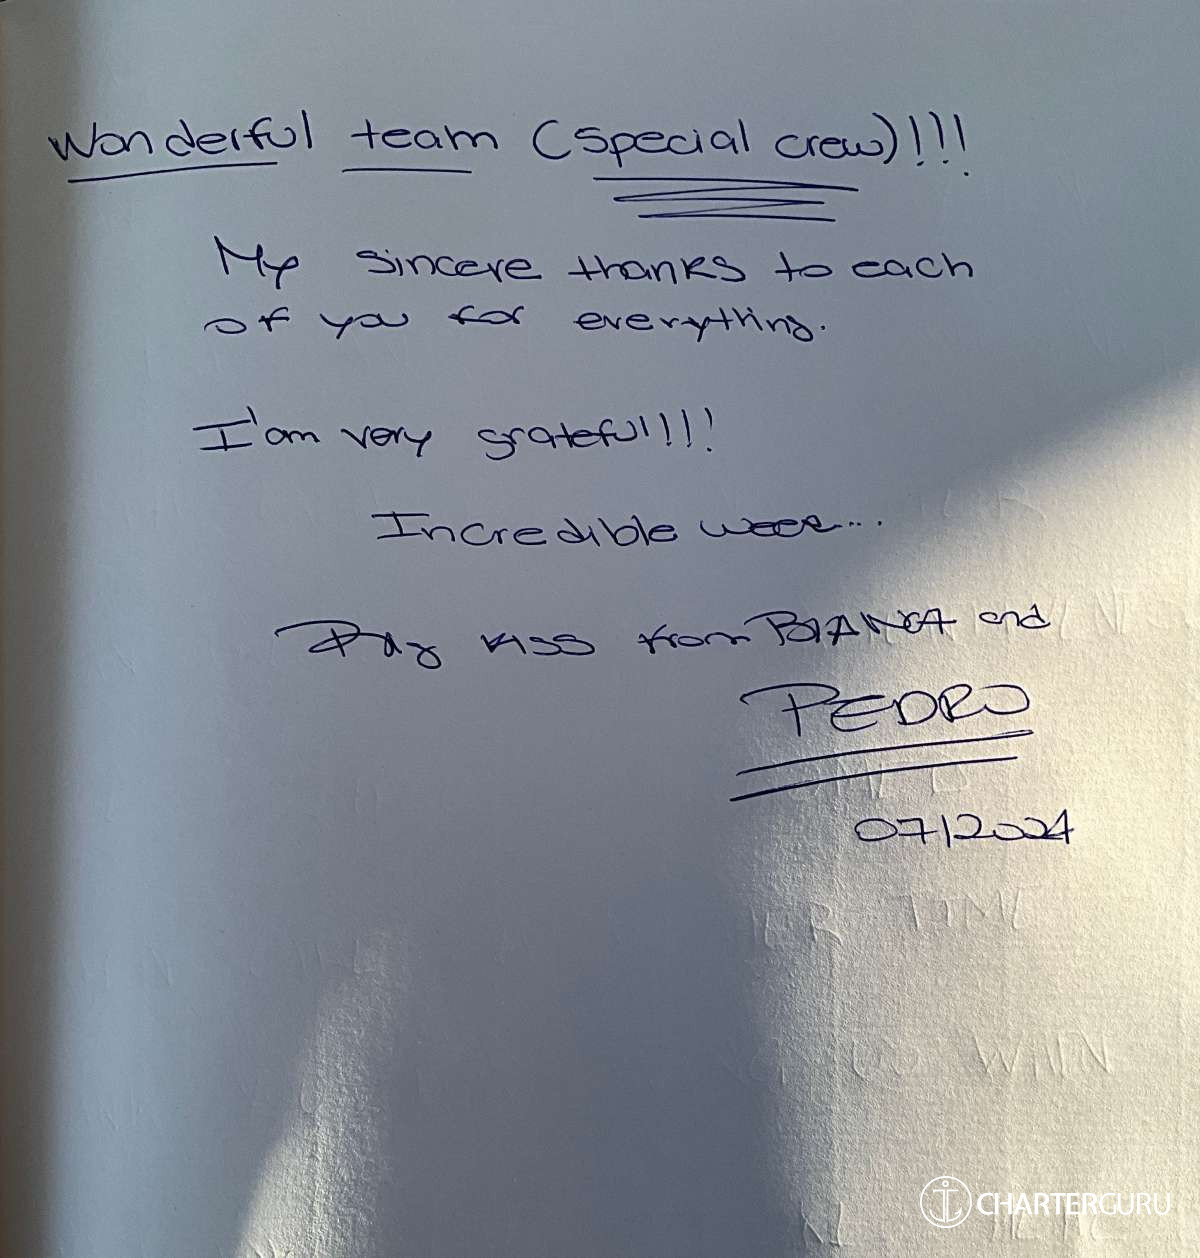 Wonderful team (special crew)!!!
My sincere thanks to each
of you for everything.
I'am very grateful!!!
Incredible week...
kiss from BIANCA and
PEDRO
07/2024
TIME
CHARTERGURU